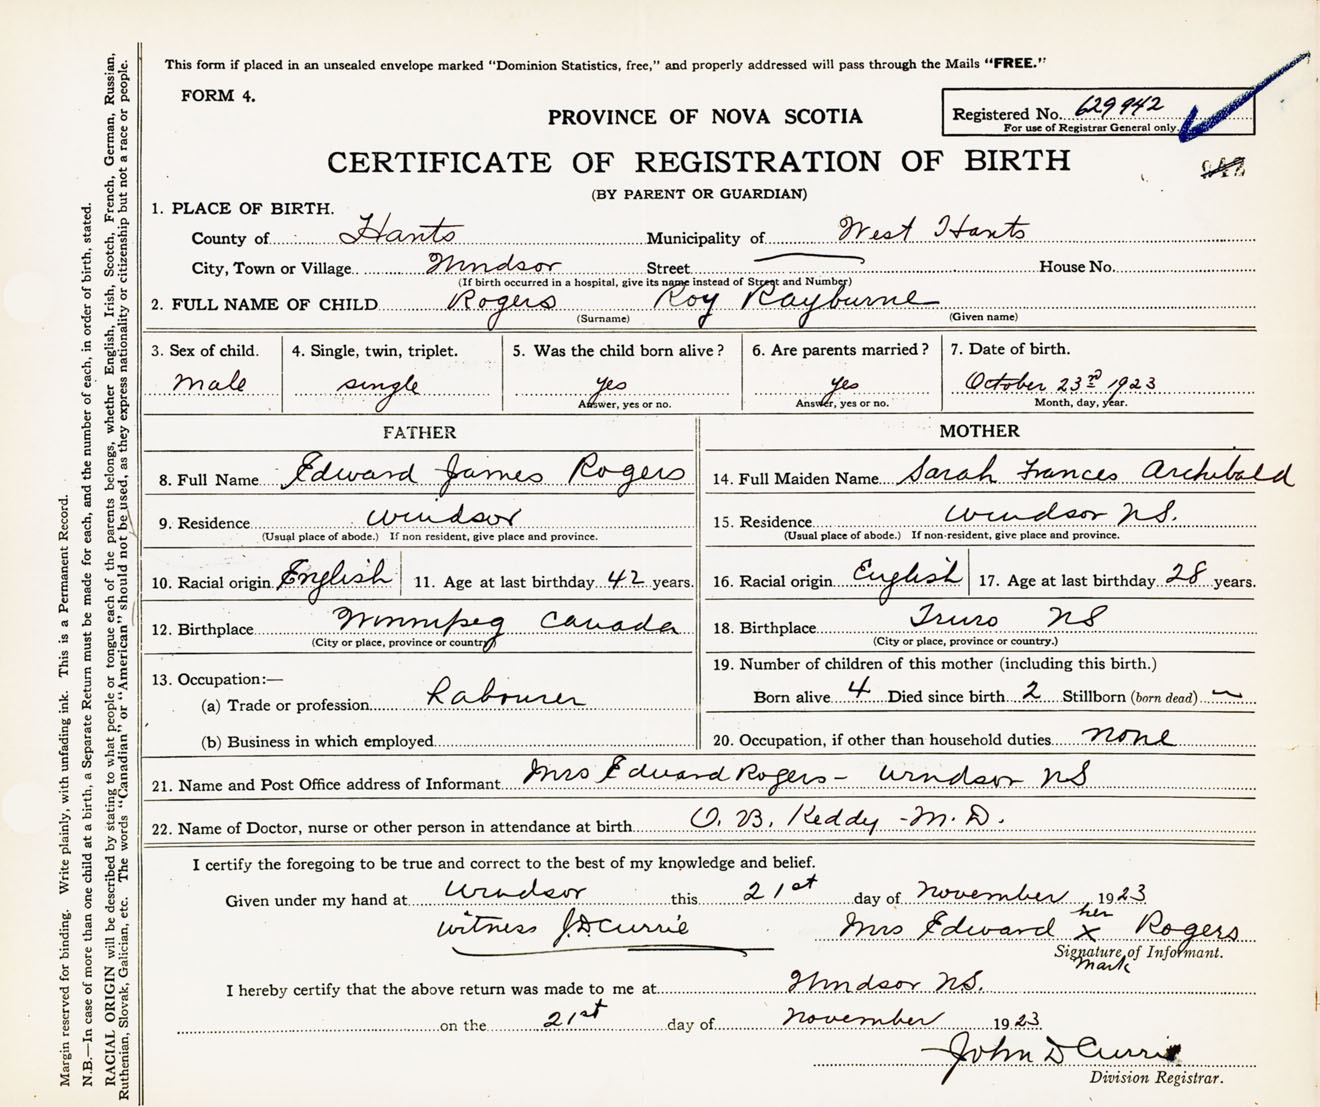 This form if placed in an unsealed envelope marked "Dominion Statistics, free," and properly addressed will pass through the Mails "FREE."
FORM 4.
PROVINCE OF NOVA SCOTIA
Registered No. 629942
For use of Registrar General only.
CERTIFICATE OF REGISTRATION OF BIRTH
(BY PARENT OR GUARDIAN)
1. PLACE OF BIRTH.
County of Hants Municipality of West Hants
City, Town or Village Windsor Street House No.
(If birth occurred in a hospital, give its name instead of Street and Number)
2. FULL NAME OF CHILD Rogers Roy Rayburne
(Surname) (Given name)
3. Sex of child. 4. Single, twin, triplet. 5. Was the child born alive? 6. Are parents married? 7. Date of birth.
male single yes yes October 23rd 1923
Answer, yes or no. Answer, yes or no. Month, day, year.
FATHER MOTHER
8. Full Name Edward James Rogers 14. Full Maiden Name Sarah Frances Archibald
9. Residence Windsor 15. Residence Windsor NS.
(Usual place of abode.) If non resident, give place and province. (Usual place of abode.) If non-resident, give place and province.
10. Racial origin English 11. Age at last birthday 42 years. 16. Racial origin English 17. Age at last birthday 28 years.
12. Birthplace Winnipeg Canada 18. Birthplace Truro NS
(City or place, province or country) (City or place, province or country.)
13. Occupation:— 19. Number of children of this mother (including this birth.)
(a) Trade or profession Labourer Born alive 4 Died since birth 2 Stillborn (born dead) —
(b) Business in which employed 20. Occupation, if other than household duties none
21. Name and Post Office address of Informant Mrs Edward Rogers - Windsor NS
22. Name of Doctor, nurse or other person in attendance at birth O. B. Keddy - M.D.
I certify the foregoing to be true and correct to the best of my knowledge and belief.
Given under my hand at Windsor this 21st day of November 1923
witness J.D Currie Mrs Edward her X Rogers
Signature of Informant.
mark
I hereby certify that the above return was made to me at Windsor NS.
on the 21st day of November 1923
John D Currie
Division Registrar.
Margin reserved for binding. Write plainly, with unfading ink. This is a Permanent Record.
N.B.—In case of more than one child at a birth, a Separate Return must be made for each, and the number of each, in order of birth, stated.
RACIAL ORIGIN will be described by stating to what people or tongue each of the parents belongs, whether English, Irish, Scotch, French, German, Russian,
Ruthenian, Slovak, Galician, etc. The words "Canadian" or "American" should not be used, as they express nationality or citizenship but not a race or people.